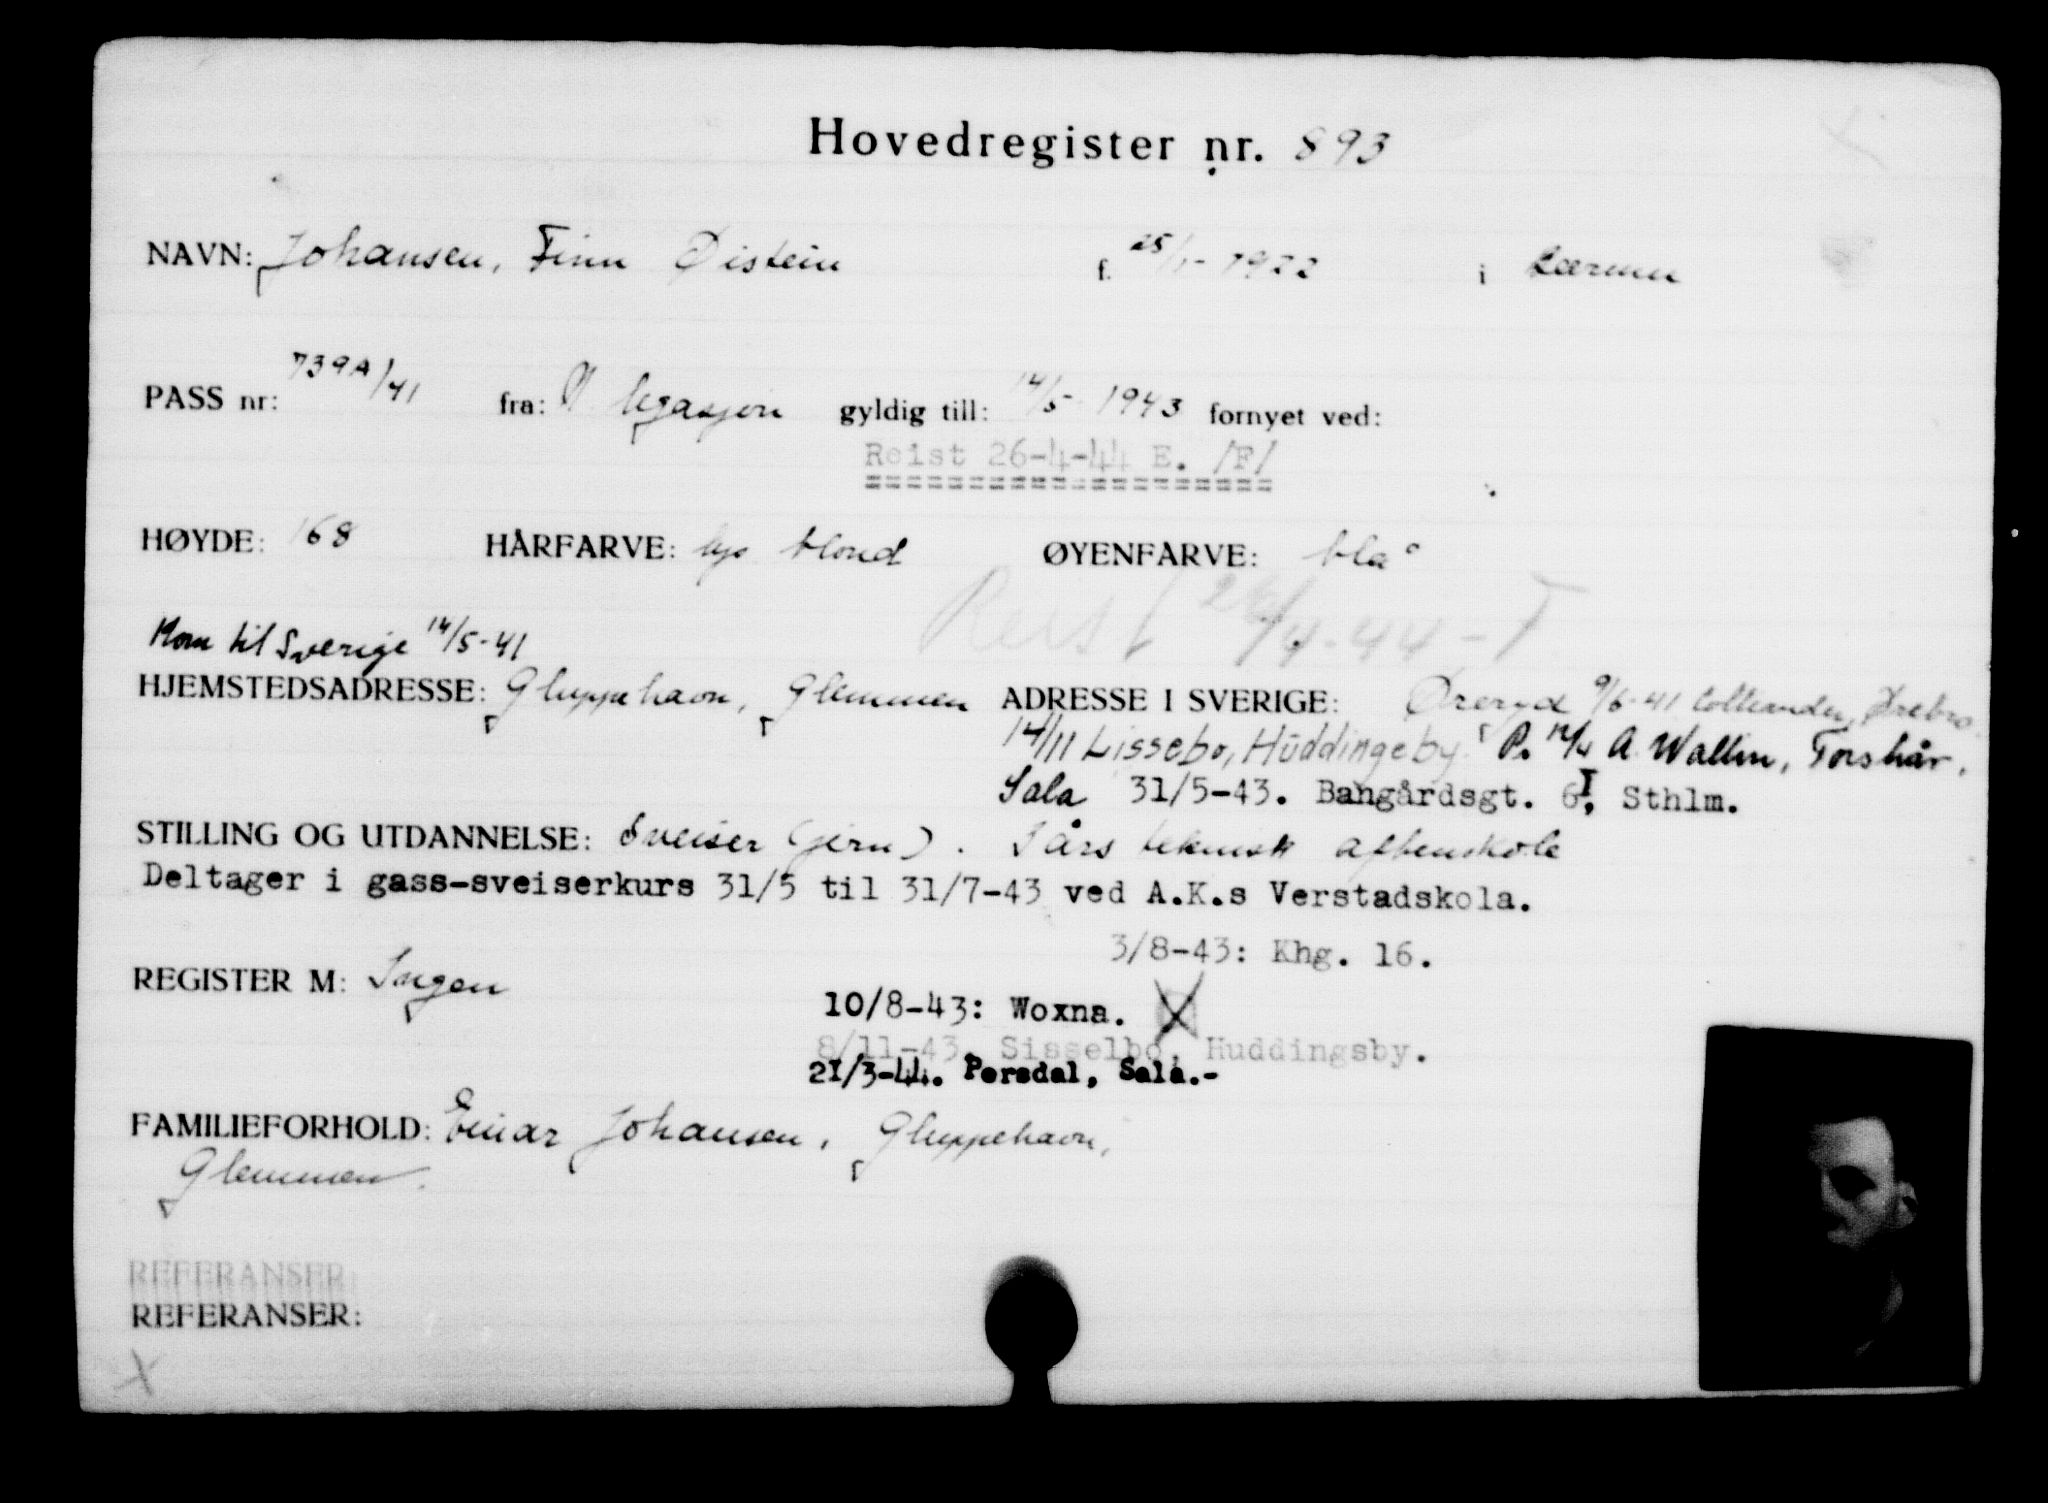 Hovedregister nr. 893
NAVN: Johansen, Finn Øistein f. 25/1-1922 i
PASS nr: 739A/41 fra: N legasjon gyldig till: 14/5 1943 fornyet ved:
Reist 26-4-44 E. /F/
HØYDE: 168 HÅRFARVE: lys blond ØYENFARVE: blå
Reist 26/4-44-F
Kom til Sverige 14/5-41
HJEMSTEDSADRESSE: Gluppehavn, Glemmen ADRESSE I SVERIGE: Øreryd 9/6-41 Ørebro
14/11 Lissebo, Huddingeby P. A. Wallin, Torshår,
Sala 31/5-43. Bangårdsgt. 6I, Sthlm.
STILLING OG UTDANNELSE: Sveiser (jern). 1 års teknisk aftenskole
Deltager i gass-sveiserkurs 31/5 til 31/7-43 ved A.K.s Verstadskola.
3/8-43: Khg. 16.
REGISTER M: Ingen
10/8-43: Woxna. X
8/11-43. Sisselbo, Huddingsby.
21/3-44. Persdal, Sala.-
FAMILIEFORHOLD: Einar Johansen, Gluppehavn,
Glemmen.
REFERANSER
REFERANSER:
X